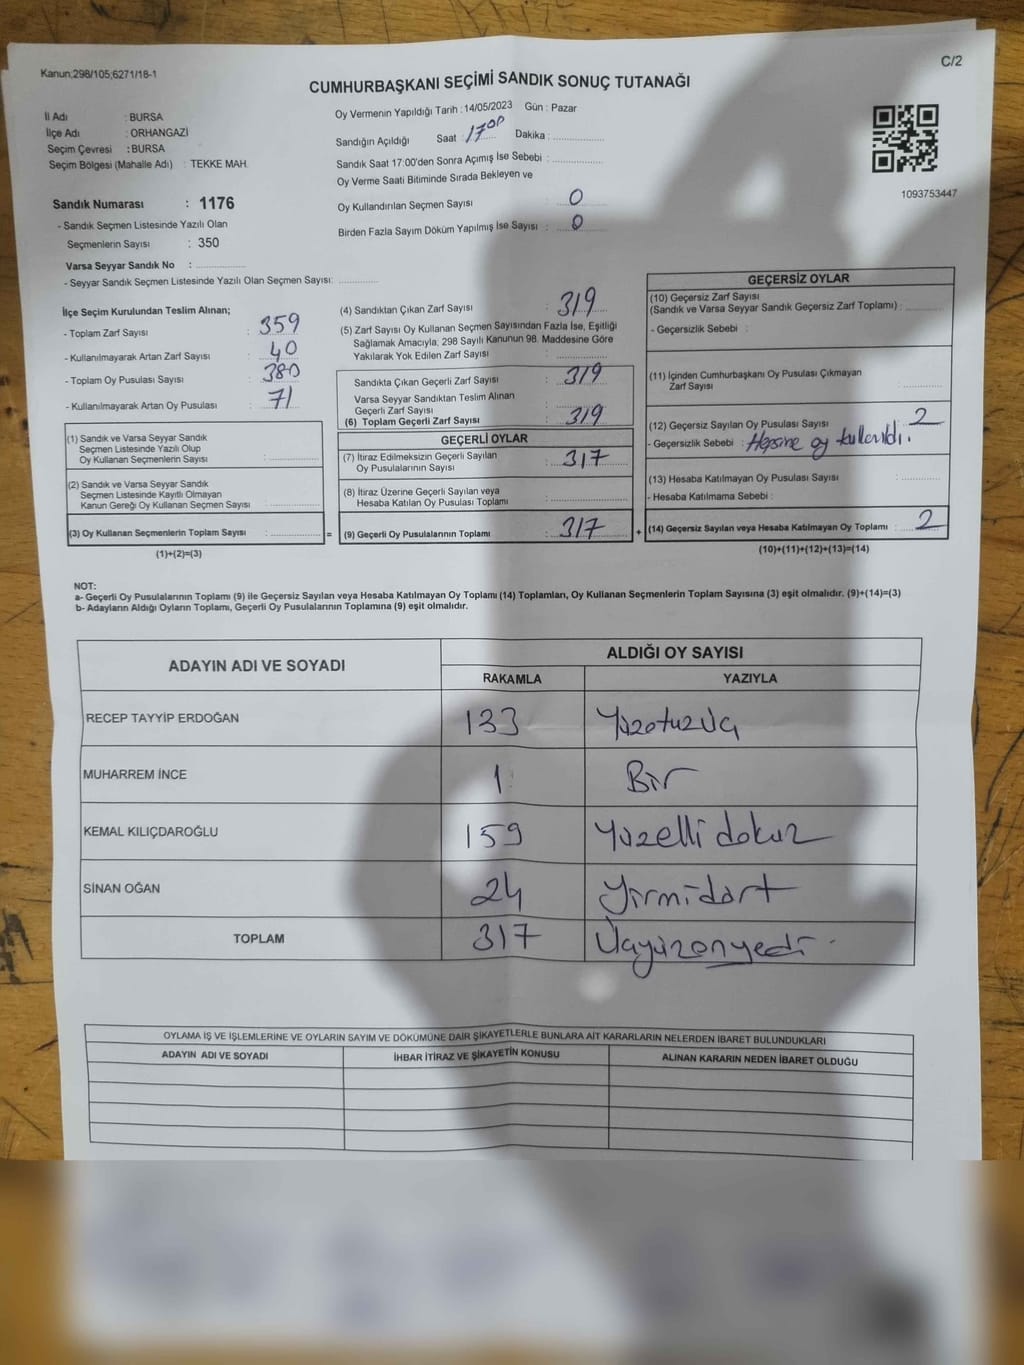 Kanun;298/105;6271/18-1
C/2
CUMHURBAŞKANI SEÇİMİ SANDIK SONUÇ TUTANAĞI
İl Adı : BURSA
İlçe Adı : ORHANGAZİ
Seçim Çevresi : BURSA
Seçim Bölgesi (Mahalle Adı) : TEKKE MAH.
Oy Vermenin Yapıldığı Tarih : 14/05/2023 Gün : Pazar
Sandığın Açıldığı Saat 17:00 Dakika :
Sandık Saat 17:00'den Sonra Açımış İse Sebebi :
Oy Verme Saati Bitiminde Sırada Bekleyen ve
Oy Kullandırılan Seçmen Sayısı : 0
Birden Fazla Sayım Döküm Yapılmış İse Sayısı : 0
1093753447
Sandık Numarası : 1176
- Sandık Seçmen Listesinde Yazılı Olan
Seçmenlerin Sayısı : 350
Varsa Seyyar Sandık No :
- Seyyar Sandık Seçmen Listesinde Yazılı Olan Seçmen Sayısı:
İlçe Seçim Kurulundan Teslim Alınan;
- Toplam Zarf Sayısı : 359
- Kullanılmayarak Artan Zarf Sayısı : 40
- Toplam Oy Pusulası Sayısı : 380
- Kullanılmayarak Artan Oy Pusulası : 71
(1) Sandık ve Varsa Seyyar Sandık
Seçmen Listesinde Yazılı Olup
Oy Kullanan Seçmenlerin Sayısı :
(2) Sandık ve Varsa Seyyar Sandık
Seçmen Listesinde Kayıtlı Olmayan
Kanun Gereği Oy Kullanan Seçmen Sayısı :
(3) Oy Kullanan Seçmenlerin Toplam Sayısı :
(1)+(2)=(3)
=
(4) Sandıktan Çıkan Zarf Sayısı : 319
(5) Zarf Sayısı Oy Kullanan Seçmen Sayısından Fazla İse, Eşitliği
Sağlamak Amacıyla; 298 Sayılı Kanunun 98. Maddesine Göre
Yakılarak Yok Edilen Zarf Sayısı :
Sandıkta Çıkan Geçerli Zarf Sayısı : 319
Varsa Seyyar Sandıktan Teslim Alınan
Geçerli Zarf Sayısı :
(6) Toplam Geçerli Zarf Sayısı : 319
GEÇERLİ OYLAR
(7) İtiraz Edilmeksizin Geçerli Sayılan
Oy Pusulalarının Sayısı : 317
(8) İtiraz Üzerine Geçerli Sayılan veya
Hesaba Katılan Oy Pusulası Toplamı :
(9) Geçerli Oy Pusulalarının Toplamı : 317
+
GEÇERSİZ OYLAR
(10) Geçersiz Zarf Sayısı
(Sandık ve Varsa Seyyar Sandık Geçersiz Zarf Toplamı) :
- Geçersizlik Sebebi :
(11) İçinden Cumhurbaşkanı Oy Pusulası Çıkmayan
Zarf Sayısı :
(12) Geçersiz Sayılan Oy Pusulası Sayısı : 2
- Geçersizlik Sebebi : Hepsine oy kullanıldı.
(13) Hesaba Katılmayan Oy Pusulası Sayısı :
- Hesaba Katılmama Sebebi :
(14) Geçersiz Sayılan veya Hesaba Katılmayan Oy Toplamı : 2
(10)+(11)+(12)+(13)=(14)
NOT:
a- Geçerli Oy Pusulalarının Toplamı (9) ile Geçersiz Sayılan veya Hesaba Katılmayan Oy Toplamı (14) Toplamları, Oy Kullanan Seçmenlerin Toplam Sayısına (3) eşit olmalıdır. (9)+(14)=(3)
b- Adayların Aldığı Oyların Toplamı, Geçerli Oy Pusulalarının Toplamına (9) eşit olmalıdır.
ADAYIN ADI VE SOYADI ALDIĞI OY SAYISI
RAKAMLA YAZIYLA
RECEP TAYYİP ERDOĞAN 133 Yüzotuzüç
MUHARREM İNCE 1 Bir
KEMAL KILIÇDAROĞLU 159 Yüzelli dokuz
SİNAN OĞAN 24 Yirmidört
TOPLAM 317 Üçyüzonyedi
OYLAMA İŞ VE İŞLEMLERİNE VE OYLARIN SAYIM VE DÖKÜMÜNE DAİR ŞİKAYETLERLE BUNLARA AİT KARARLARIN NELERDEN İBARET BULUNDUKLARI
ADAYIN ADI VE SOYADI İHBAR İTİRAZ VE ŞİKAYETİN KONUSU ALINAN KARARIN NEDEN İBARET OLDUĞU